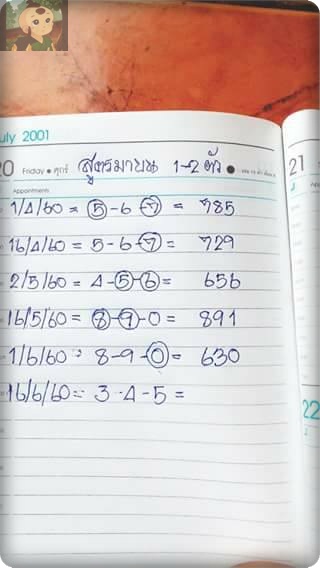 July 2001
20 Friday • ศุกร์ สูตรมาบน 1-2 ตัว 21
Appointments
1/4/60 = 5-6-7 = 785
16/4/60 = 5-6-7 = 729
2/5/60 = 4-5-6 = 656
16/5/60 = 8-9-0 = 891
1/6/60 = 8-9-0 = 630
16/6/60 = 3-4-5 =
22